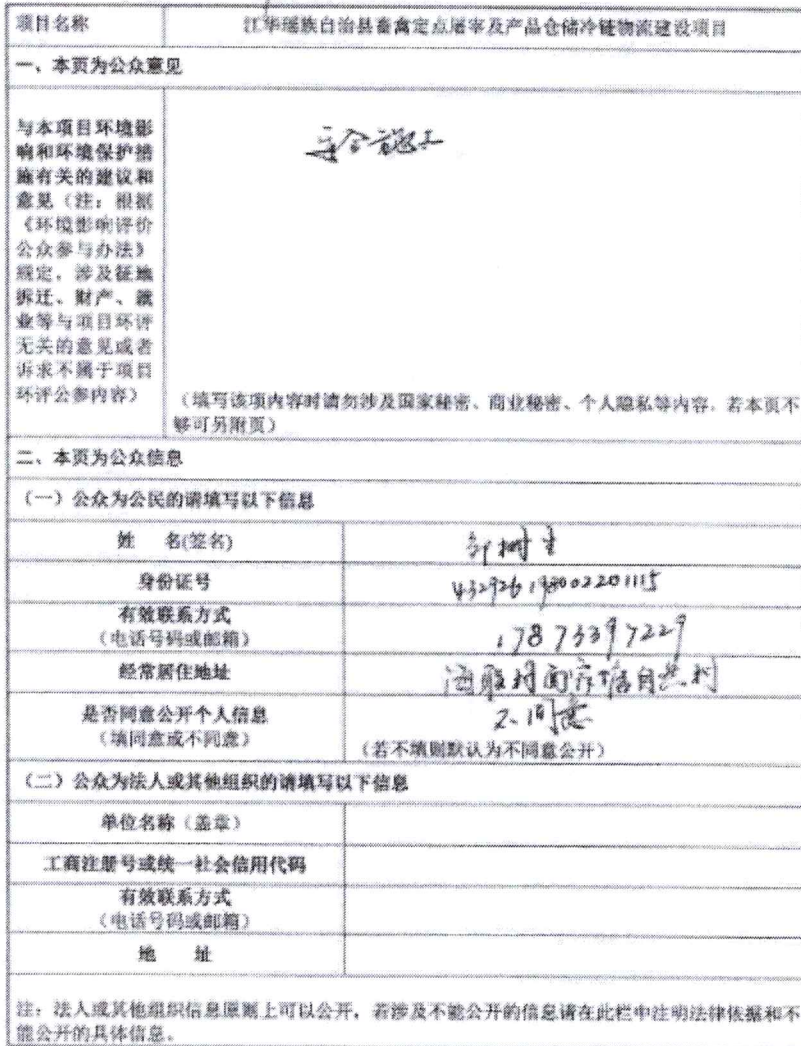 项目名称 江华瑶族自治县畜禽定点屠宰及产品仓储冷链物流建设项目
一、本页为公众意见
与本项目环境影
响和环境保护措
施有关的建议和
意见（注：根据
《环境影响评价
公众参与办法》
规定，涉及征地
拆迁、财产、就
业等与项目环评
无关的意见或者
诉求不属于项目
环评公参内容）
安全施工
（填写该项内容时请勿涉及国家秘密、商业秘密、个人隐私等内容，若本页不
够可另附页）
二、本页为公众信息
（一）公众为公民的请填写以下信息
姓 名(签名) 树生
身份证号 432926198002201115
有效联系方式
（电话号码或邮箱） 17873397229
经常居住地址 自然村
是否同意公开个人信息
（填同意或不同意） 不同意
（若不填则默认为不同意公开）
（二）公众为法人或其他组织的请填写以下信息
单位名称（盖章）
工商注册号或统一社会信用代码
有效联系方式
（电话号码或邮箱）
地 址
注：法人或其他组织信息原则上可以公开，若涉及不能公开的信息请在此栏中注明法律依据和不
能公开的具体信息。